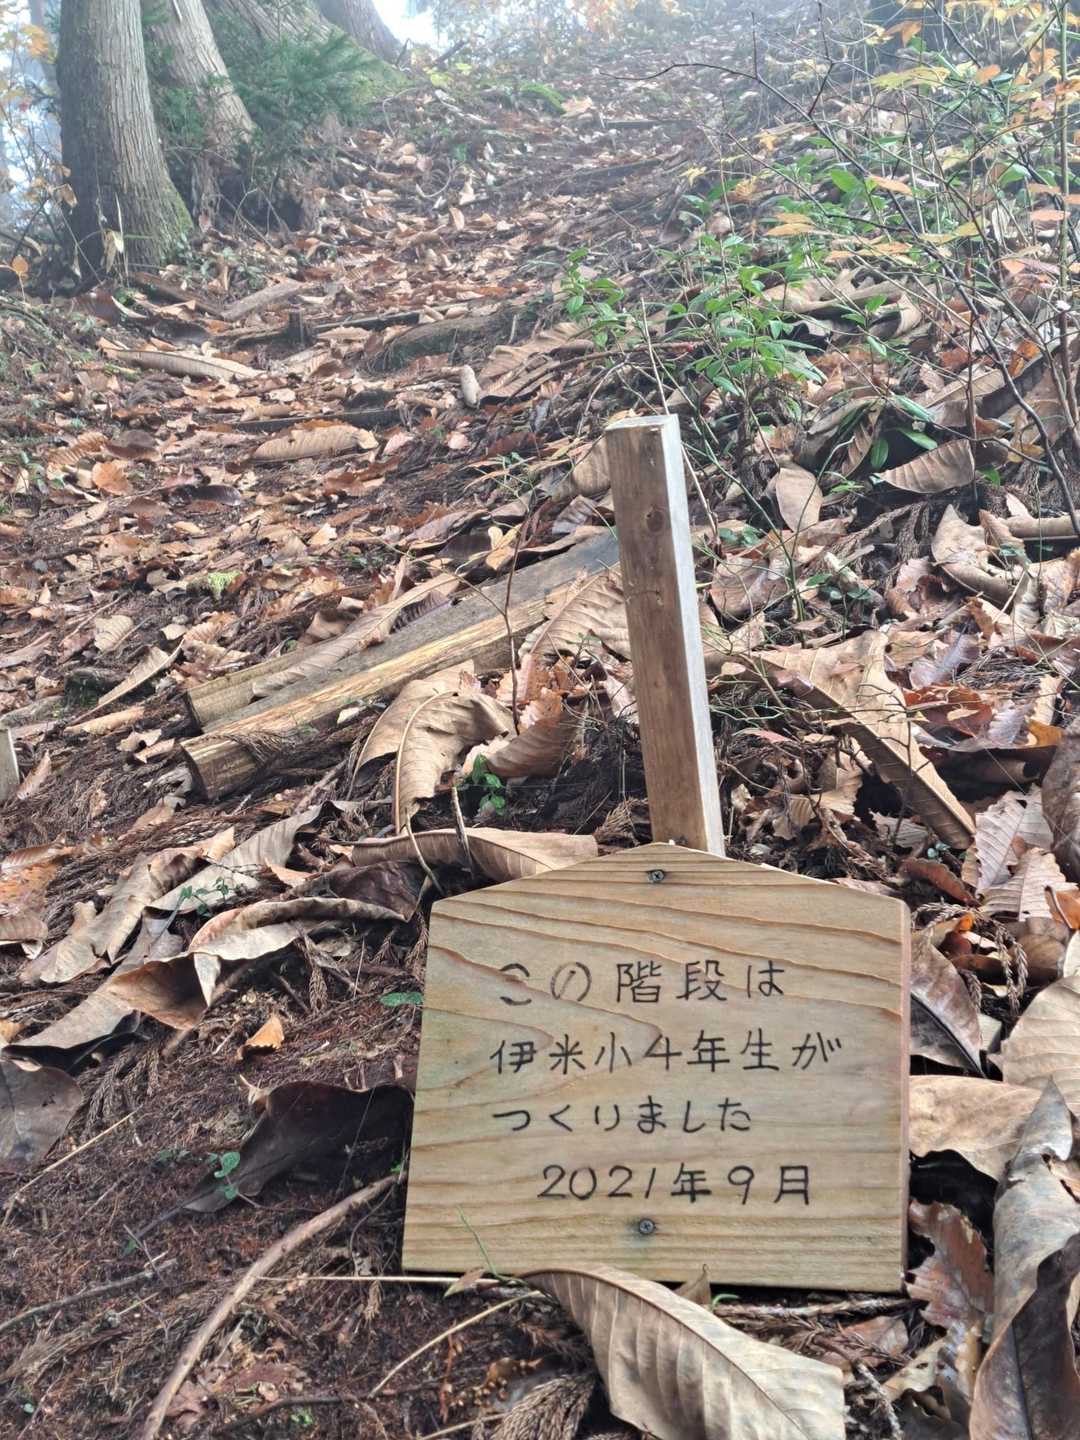 この階段は
伊米小4年生が
つくりました
2021年9月